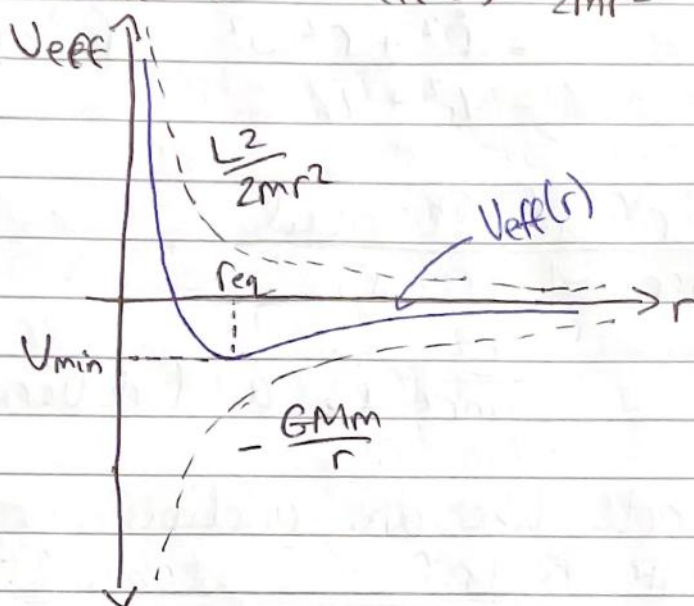 2mr²
Ueff
L²/2mr²
Ueff(r)
req
r
Umin
- GMm/r